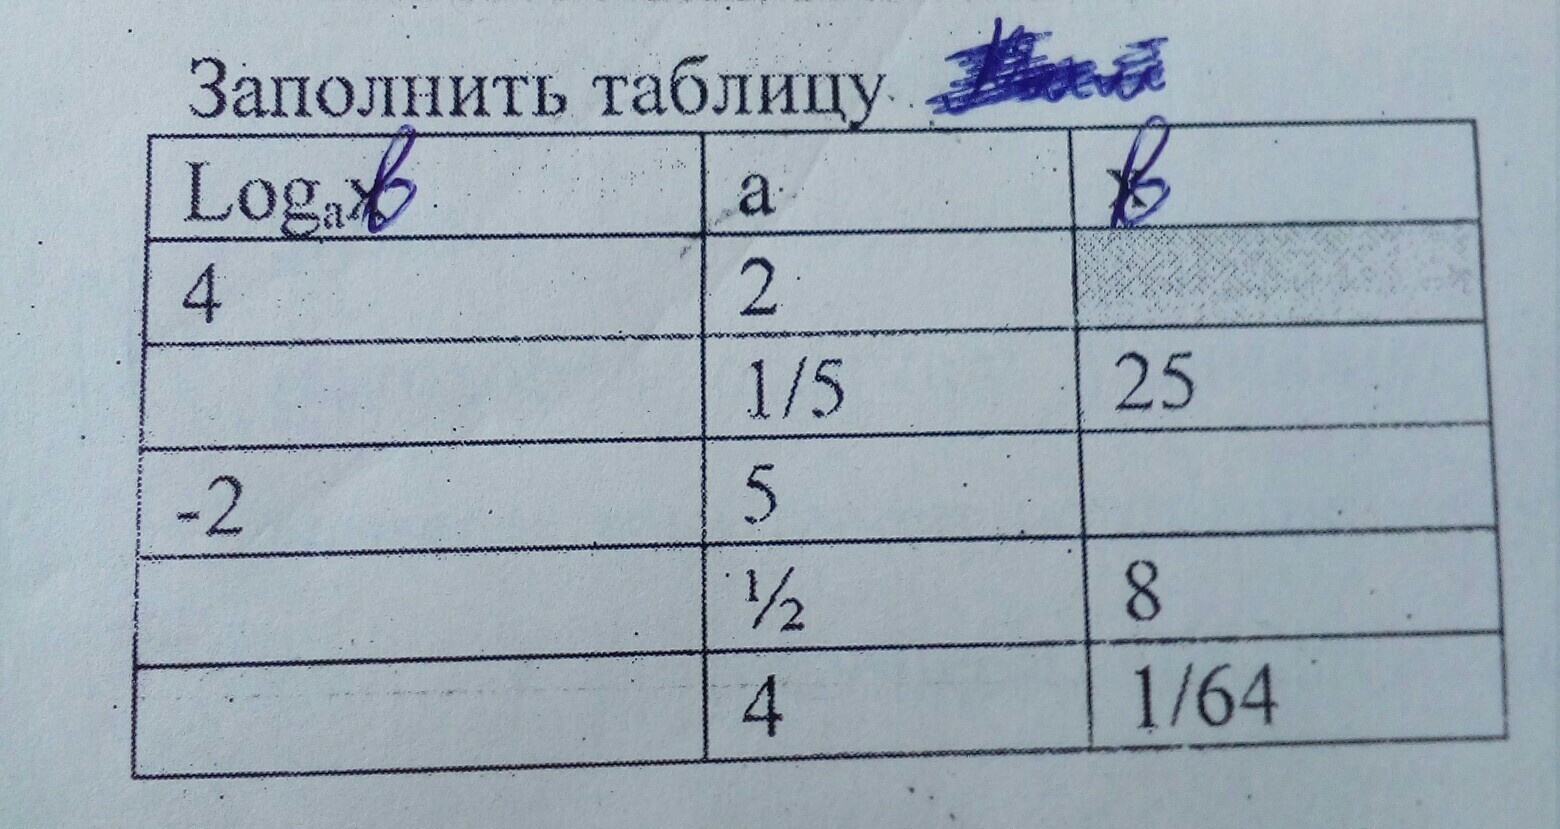 Заполнить таблицу
Logₐв a в
4 2
1/5 25
-2 5
½ 8
4 1/64